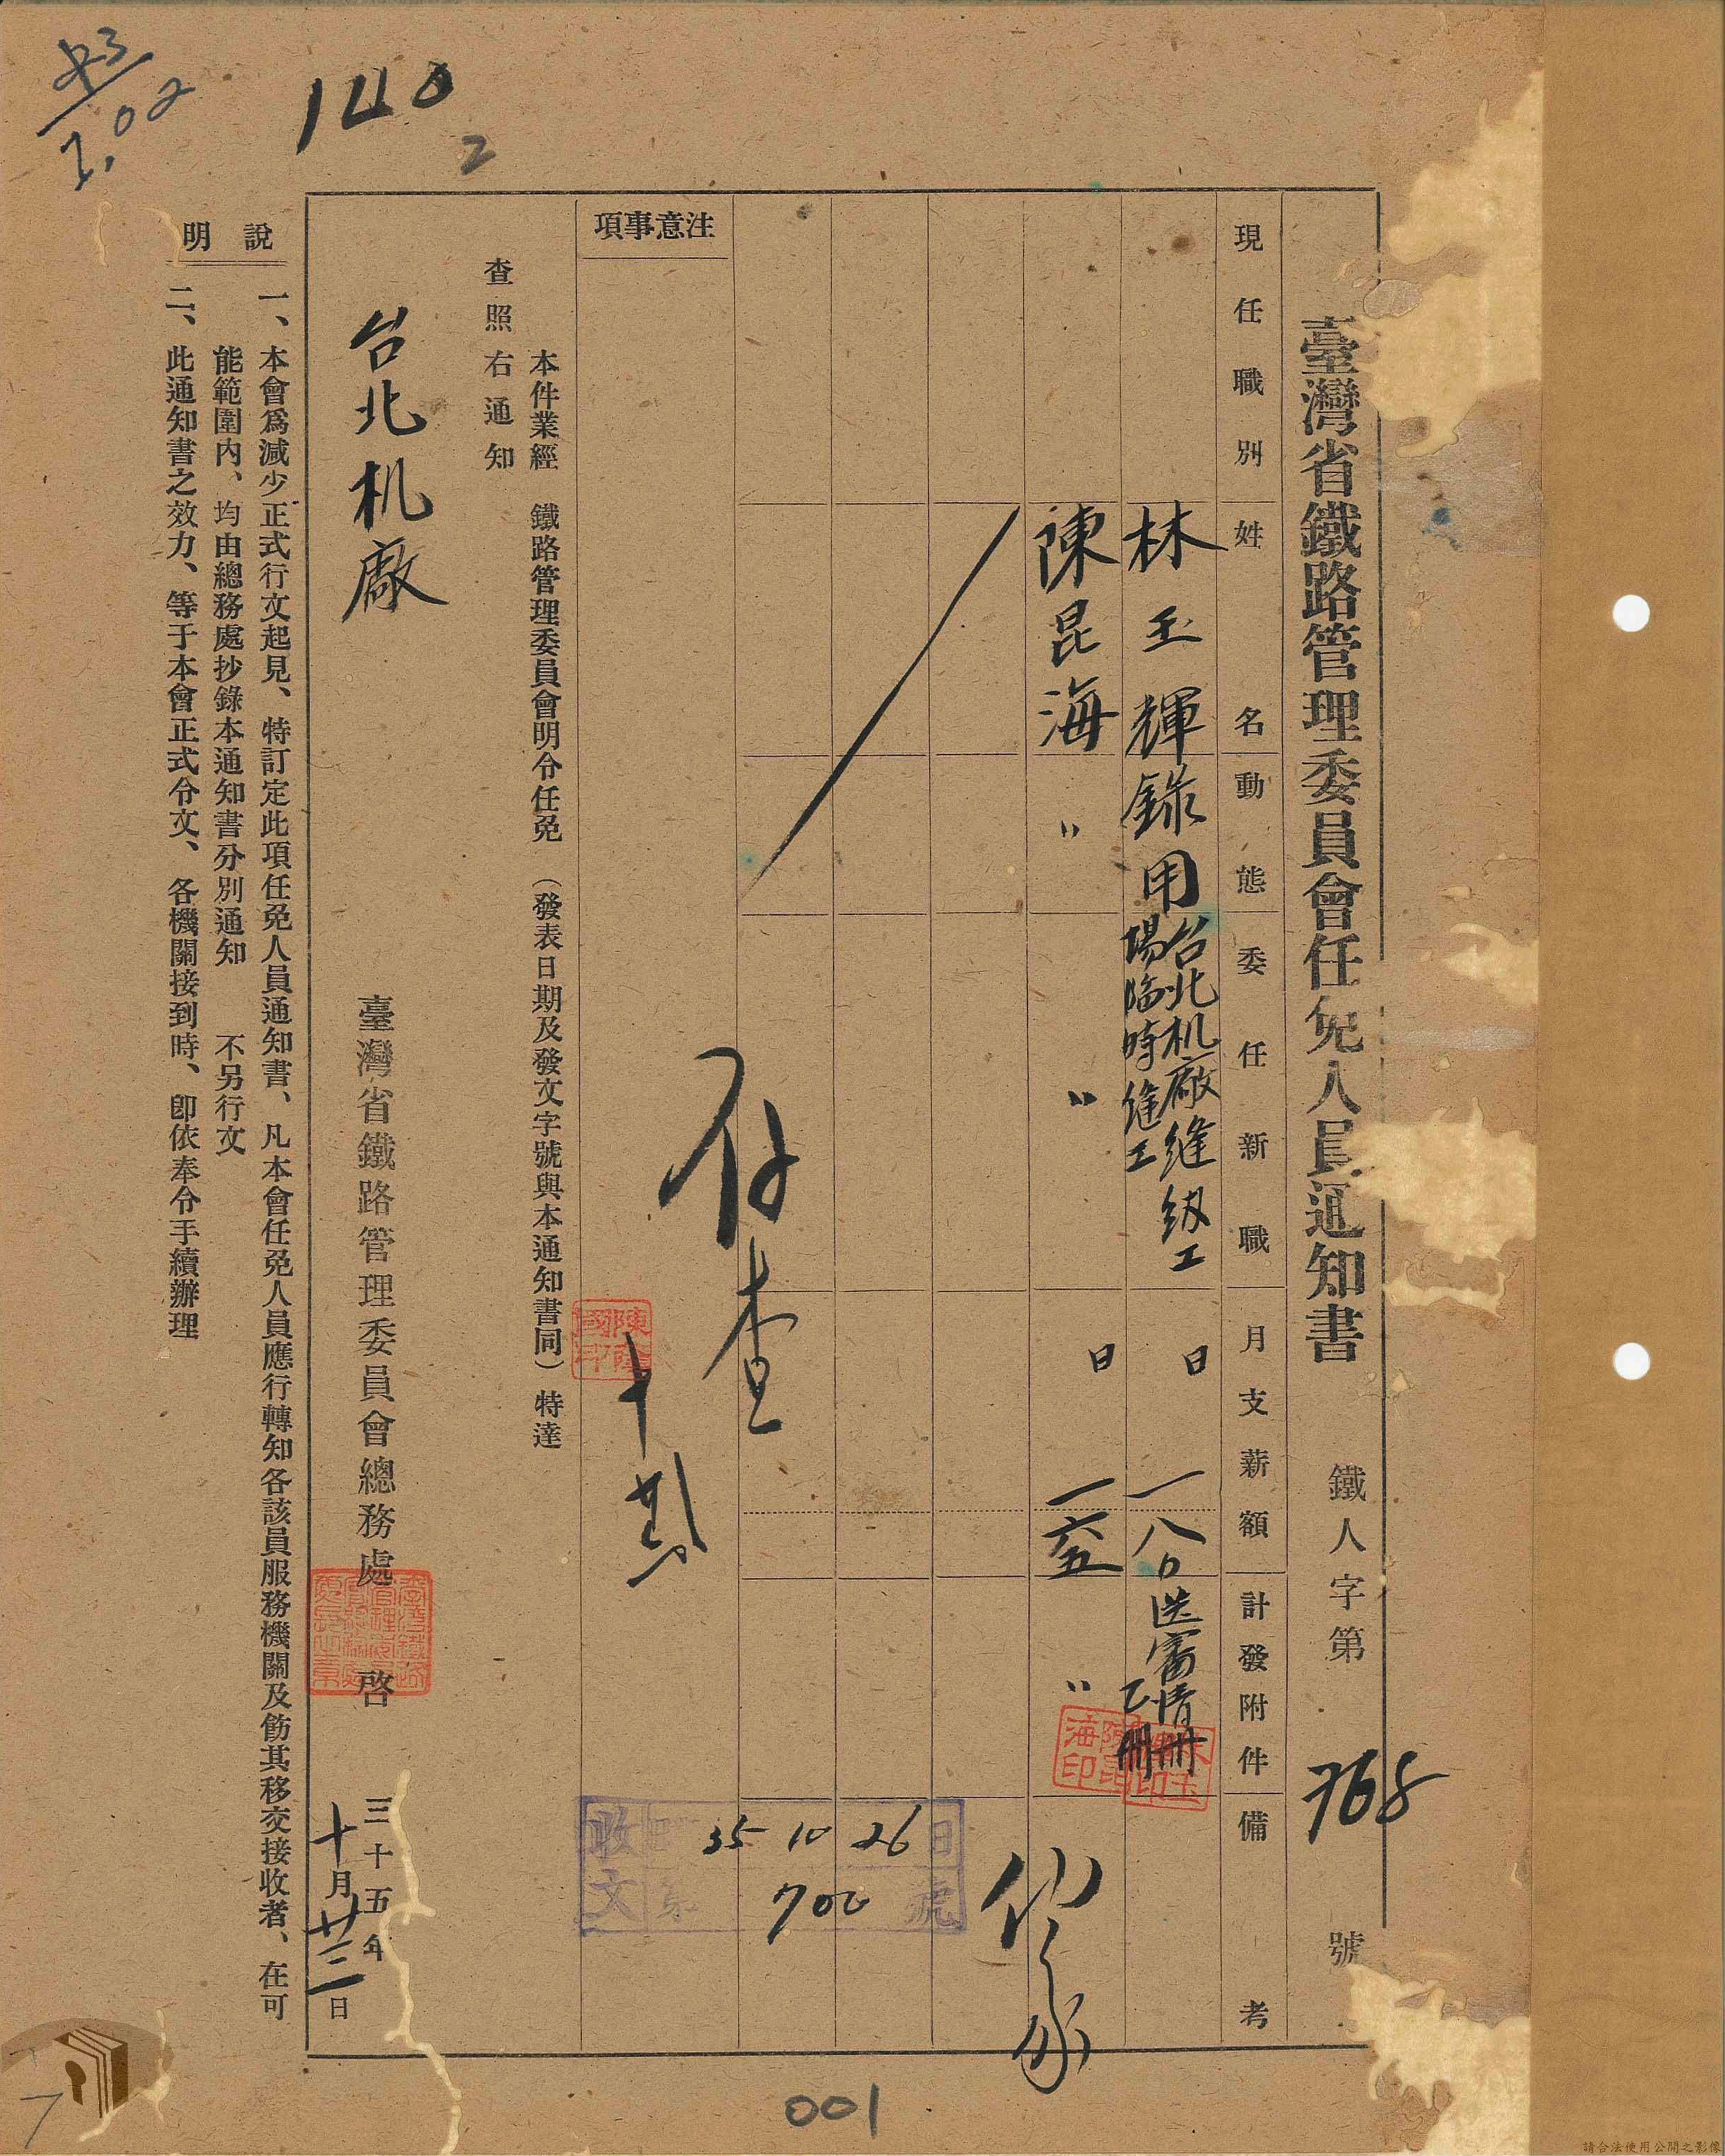 臺灣省鐵路管理委員會任免人員通知書
鐵人字第768號
現任職別 姓名 動態 委任新職 月支薪額 計發附件 備考
林玉輝 錄用 台北机廠縫紉工場臨時縫工 日 一八〇 送審情冊乙冊
陳昆海 〃 〃 日 一六五 〃
注意事項
存查
本件業經 鐵路管理委員會明令任免 (發表日期及發文字號與本通知書同) 特達
查照 右通知
台北机廠
臺灣省鐵路管理委員會總務處 啓
三十五年十月廿三日
陳昆海印
收文
35 10 26 日
第 700 號
說明
一、本會爲減少正式行文起見、特訂定此項任免人員通知書、凡本會任免人員應行轉知各該員服務機關及飭其移交接收者、在可
能範圍內、均由總務處抄錄本通知書分別通知 不另行文
二、此通知書之效力、等于本會正式令文、各機關接到時、卽依奉令手續辦理
140
2
001
7
請合法使用公開之影像